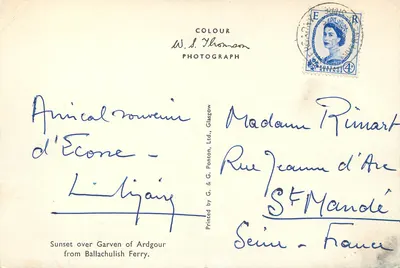 COLOUR
W. S. Thomson
PHOTOGRAPH
E R
4D
Amical souvenir
d'Ecosse -
Madame Rimart
Rue Jeanne d'Arc
St Mandé
Seine - France
Printed by G. & G. Penton, Ltd., Glasgow
Sunset over Garven of Ardgour
from Ballachulish Ferry.